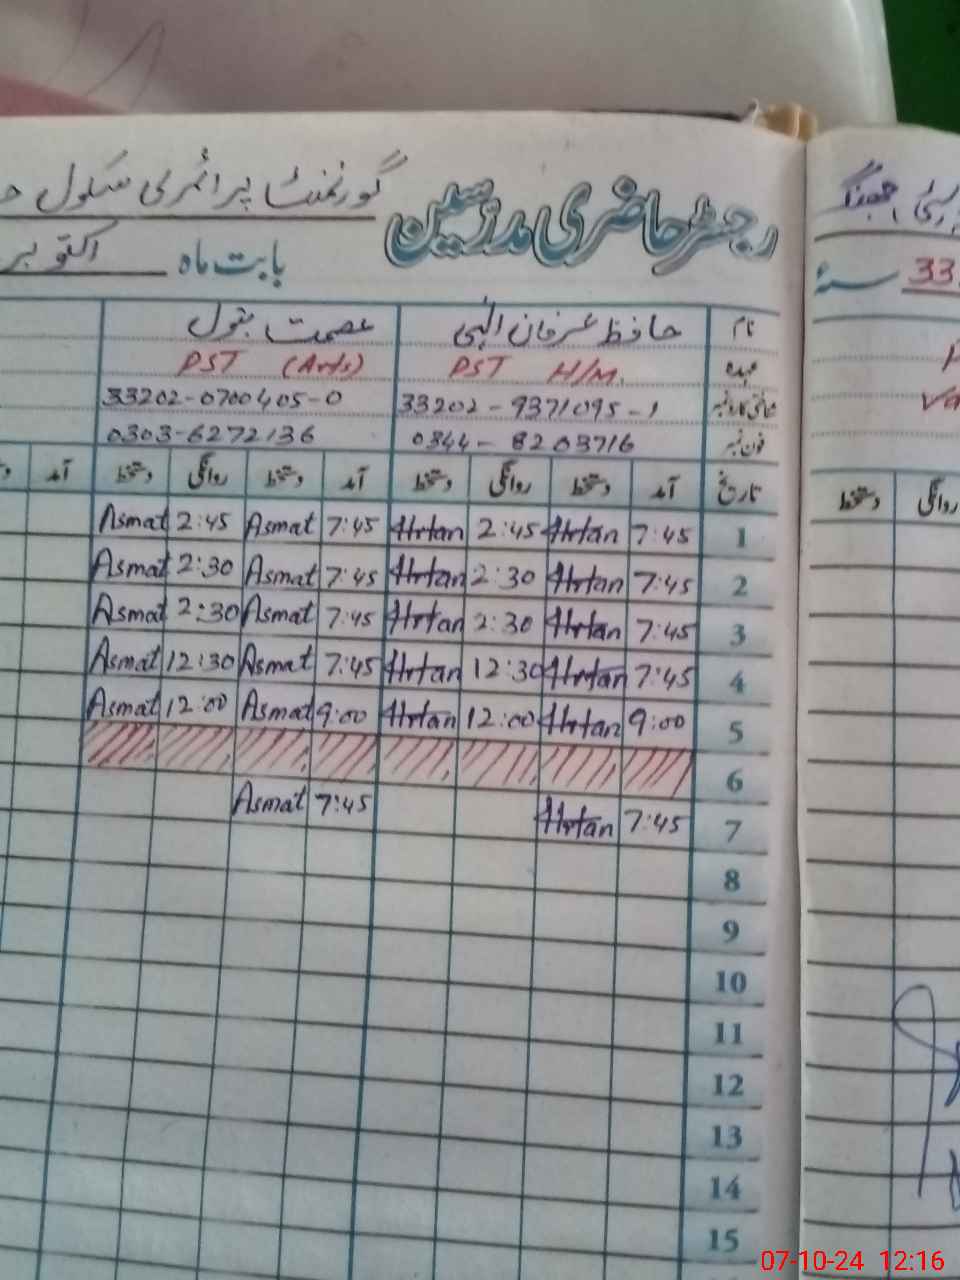 گورنمنٹ پرائمری سکول
رجسٹر حاضری مدرسین
بابت ماہ اکتوبر
سنہ 33
نام حافظ عرفان الہی عصمت بتول
عہدہ PST H/M. PST (Arts)
شناختی کارڈ نمبر 33202-9371095-1 33202-0700405-0
فون نمبر 0344-8203716 0303-6272136
تاریخ آمد دستخط روانگی دستخط آمد دستخط روانگی دستخط آمد
روانگی دستخط
1 7:45 Irfan 2:45 Irfan 7:45 Asmat 2:45 Asmat
2 7:45 Irfan 2:30 Irfan 7:45 Asmat 2:30 Asmat
3 7:45 Irfan 2:30 Irfan 7:45 Asmat 2:30 Asmat
4 7:45 Irfan 12:30 Irfan 7:45 Asmat 12:30 Asmat
5 9:00 Irfan 12:00 Irfan 9:00 Asmat 12:00 Asmat
6
7 7:45 Irfan 7:45 Asmat
8
9
10
11
12
13
14
15
07-10-24 12:16